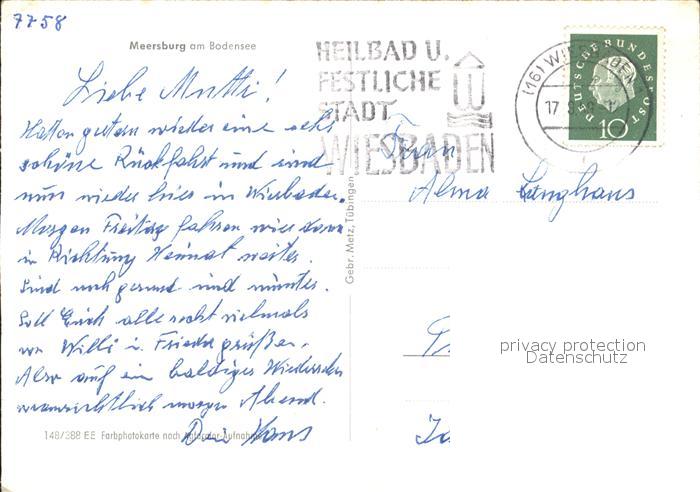 7758
Meersburg am Bodensee
HEILBAD U.
FESTLICHE
STADT
WIESBADEN
(16) WIESBADEN
17.9.
DEUTSCHE BUNDESPOST
10
Liebe Mutti!
Hatten gestern wieder eine sehr
schöne Rückfahrt und sind
nun wieder hier in Wiesbaden.
Morgen Freitag fahren wir dann
in Richtung Heimat weiter.
Sind noch gesund und munter.
Soll Euch alle recht vielmals
von Willi u. Frieda grüßen.
Also auf ein baldiges Wiedersehen
voraussichtlich morgen Abend.
Dein Hans
Frau
Alma Langhans
Gebr. Metz, Tübingen
privacy protection
Datenschutz
148/388 EE Farbphotokarte nach